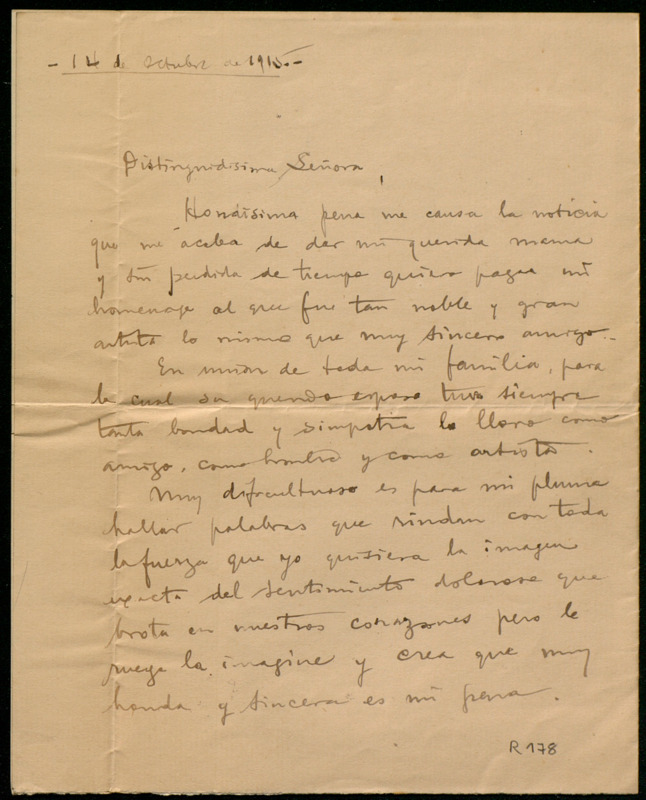 - 14 de octubre de 1915.-
Distinguidisima Señora,
Hondisima pena me causa la noticia
que me acaba de dar mi querida mama
y sin perdida de tiempo quiero pagar mi
homenaje al que fue tan noble y gran
artista lo mismo que muy sincero amigo.-
En union de toda mi familia, para
la cual su querido esposo tuvo siempre
tanta bondad y simpatia lo lloro como
amigo, como hombre y como artista.
Muy dificultuoso es para mi pluma
hallar palabras que rindan con toda
la fuerza que yo quisiera la imagen
exacta del sentimiento doloroso que
brota en nuestros corazones pero le
ruego la imagine y crea que muy
honda y sincera es mi pena.
R 178